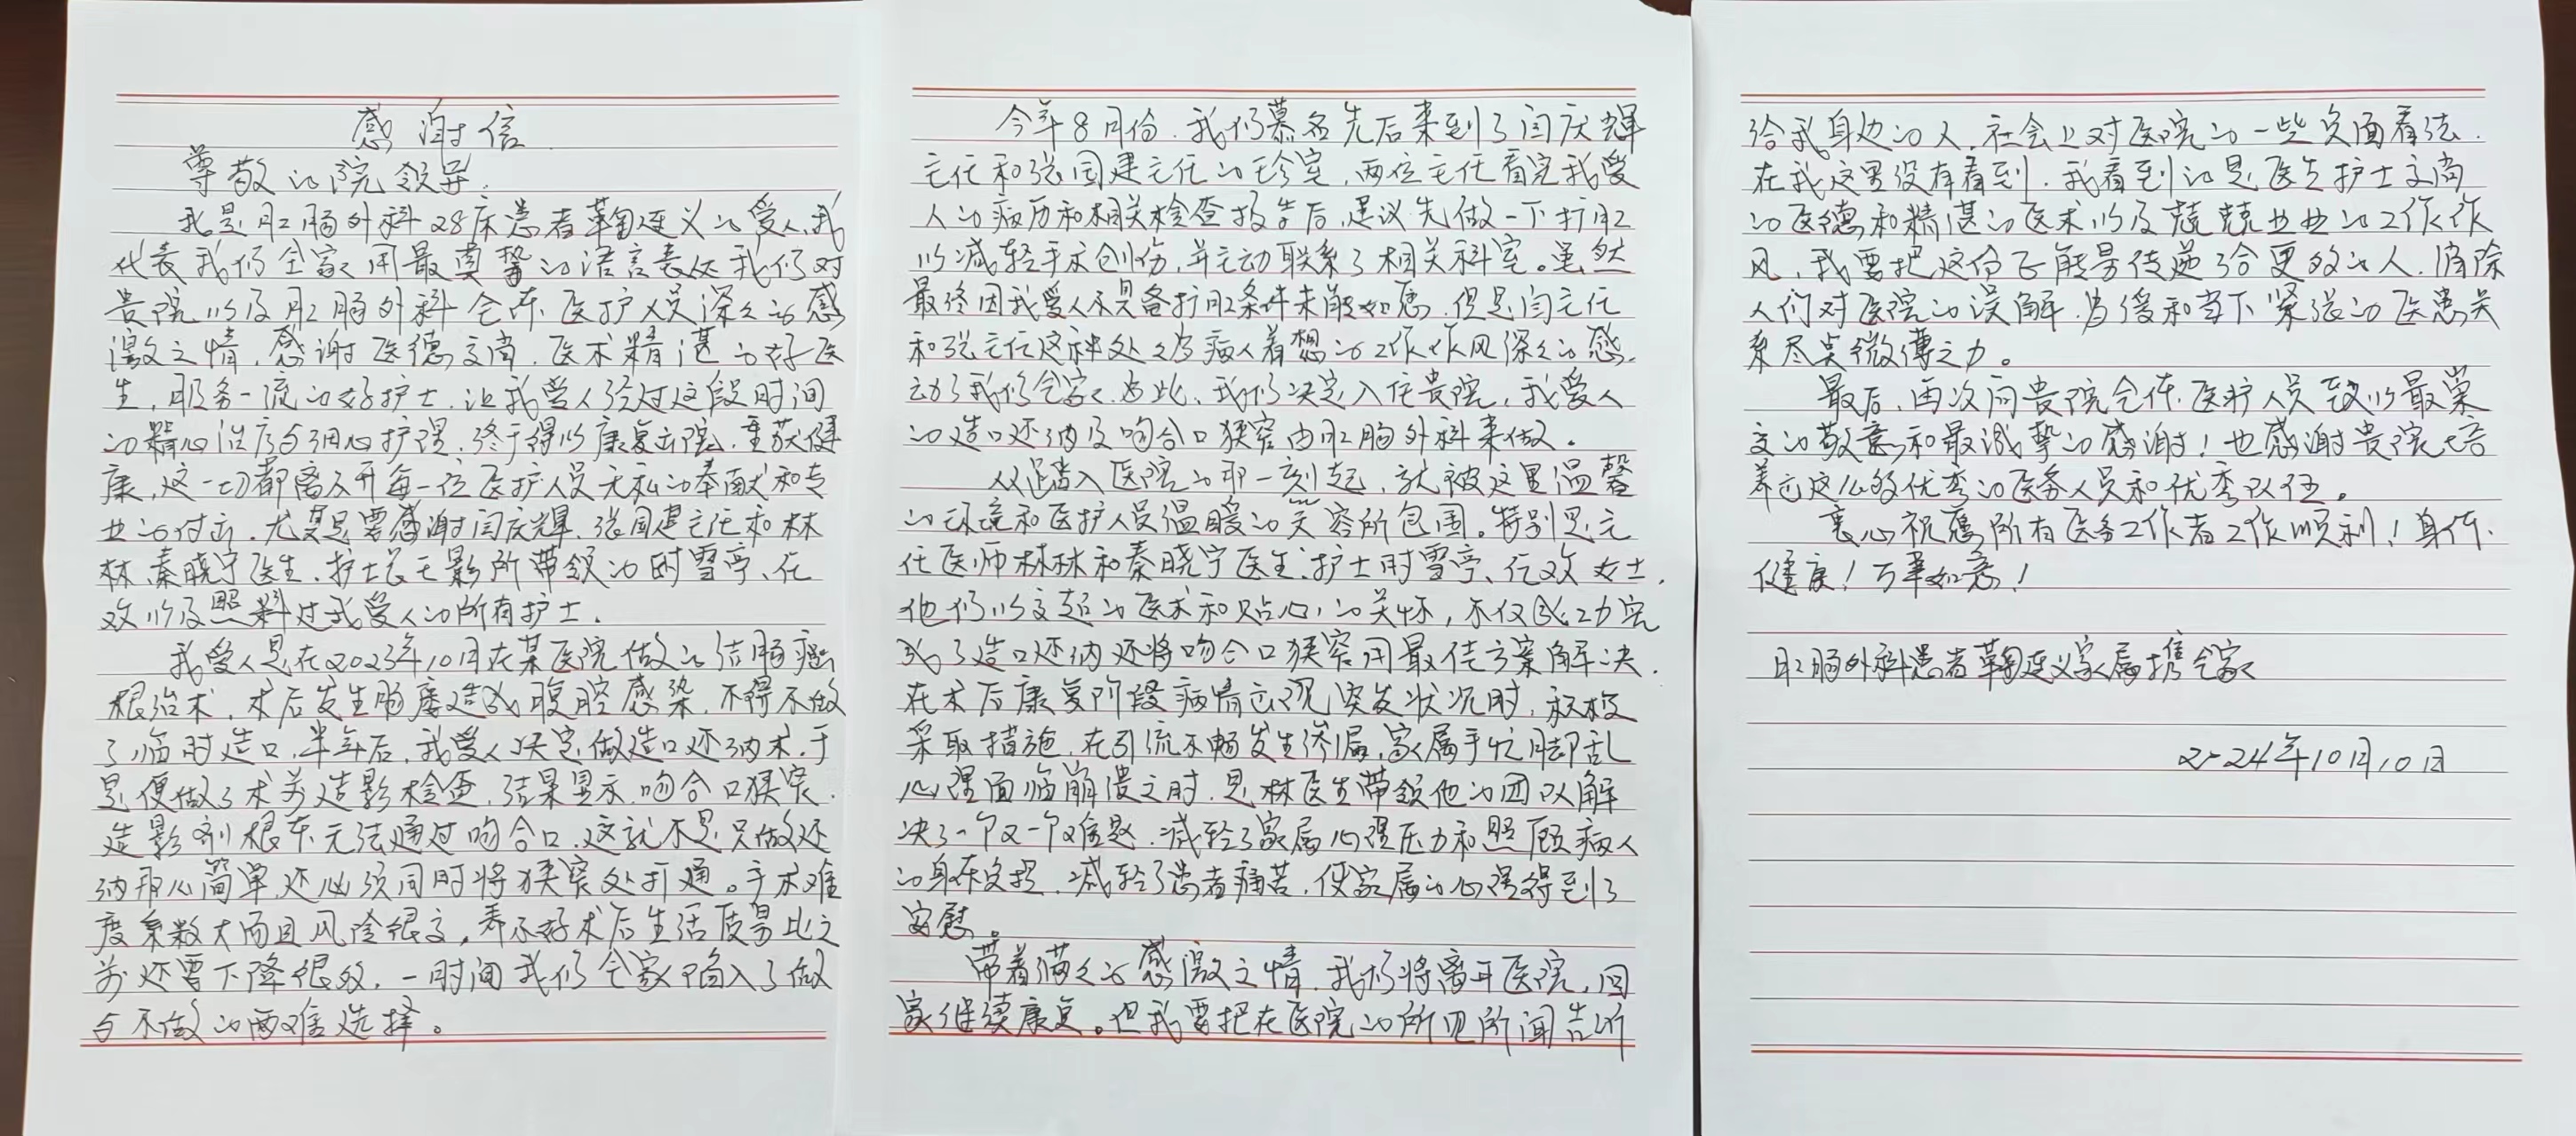 感谢信
尊敬的院领导:
我是肛肠外科28床患者鞠连义的爱人,我
代表我们全家用最真挚的语言表达我们对
贵院以及肛肠外科全体医护人员深深的感
激之情,感谢医德高尚,医术精湛的好医
生,服务一流的好护士,让我爱人经过这段时间
的精心治疗与细心护理,终于得以康复出院,重获健
康,这一切都离不开每一位医护人员无私的奉献和专
业的付出,尤其是要感谢闫庆辉、张国建主任和林
林、秦晓宁医生,护士长王影所带领的时雪亭、任
改以及照料过我爱人的所有护士。
我爱人是在2023年10月在某医院做的结肠癌
根治术,术后发生肠瘘造成腹腔感染,不得不做
了临时造口,半年后,我爱人决定做造口还纳术,于
是便做了术前造影检查,结果显示,吻合口狭窄,
造影剂根本无法通过吻合口,这就不是只做还
纳那么简单,还必须同时将狭窄处打通。手术难
度系数大而且风险很高,弄不好术后生活质量比之
前还要下降很多,一时间我们全家陷入了做
与不做的两难选择。
今年8月份,我们慕名先后来到了闫庆辉
主任和张国建主任的诊室,两位主任看完我爱
人的病历和相关检查报告后,建议先做一下扩肛
以减轻手术创伤,并主动联系了相关科室。虽然
最终因我爱人不具备扩肛条件未能如愿,但是闫主任
和张主任这种处处为病人着想的工作作风深深的感
动了我们全家,为此,我们决定入住贵院,我爱人
的造口还纳及吻合口狭窄由肛肠外科来做。
从踏入医院的那一刻起,就被这里温馨
的环境和医护人员温暖的笑容所包围。特别是主
任医师林林和秦晓宁医生、护士时雪亭、任改女士,
他们以高超的医术和贴心的关怀,不仅成功完
成了造口还纳还将吻合口狭窄用最佳方案解决,
在术后康复阶段病情出现突发状况时,积极
采取措施,在引流不畅发生渗漏,家属手忙脚乱
心理面临崩溃之时,是林医生带领他的团队解
决了一个又一个难题,减轻了家属心理压力和照顾病人
的身体负担,减轻了患者痛苦,使家属的心理得到了
安慰。
带着满满的感激之情,我们将离开医院,回
家继续康复。但我要把在医院的所见所闻告诉
给我身边的人,社会上对医院的一些负面看法,
在我这里没有看到,我看到的是医生护士高尚
的医德和精湛的医术以及兢兢业业的工作作
风,我要把这份正能量传递给更多的人,消除
人们对医院的误解,为缓和当下紧张的医患关
系尽点微薄之力。
最后,再次向贵院全体医护人员致以最崇
高的敬意和最诚挚的感谢!也感谢贵院培
养出这么多优秀的医务人员和优秀队伍。
衷心祝愿所有医务工作者工作顺利!身体
健康!万事如意!
肛肠外科患者鞠连义家属携全家
2024年10月10日